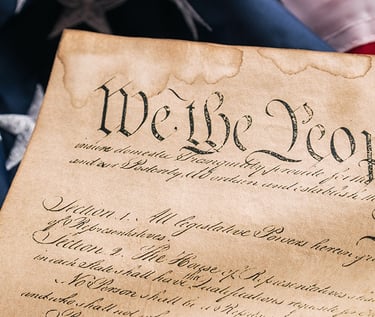 We the Peop
insure domestic Tranquility, provide for the
and our Posterity, do ordain and establish th
Section. 1. All legislative Powers herein gra
of Representatives.
Section. 2. The House of Representatives s
in each State shall have the Qualifications requisite for
No Person shall be a Repres
and who shall not